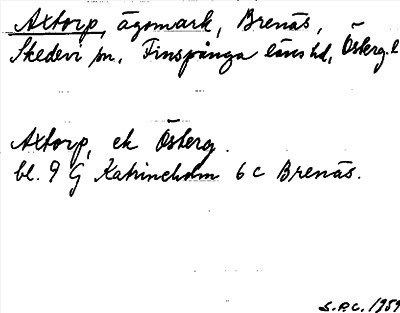 Axtorp, ägomark, Brenäs,
Skedevi sn, Finspånga läns hd, Österg. l
Axtorp, ek Österg.
bl. 9 G Katrineholm 6 c Brenäs.
S.P.C. 1959